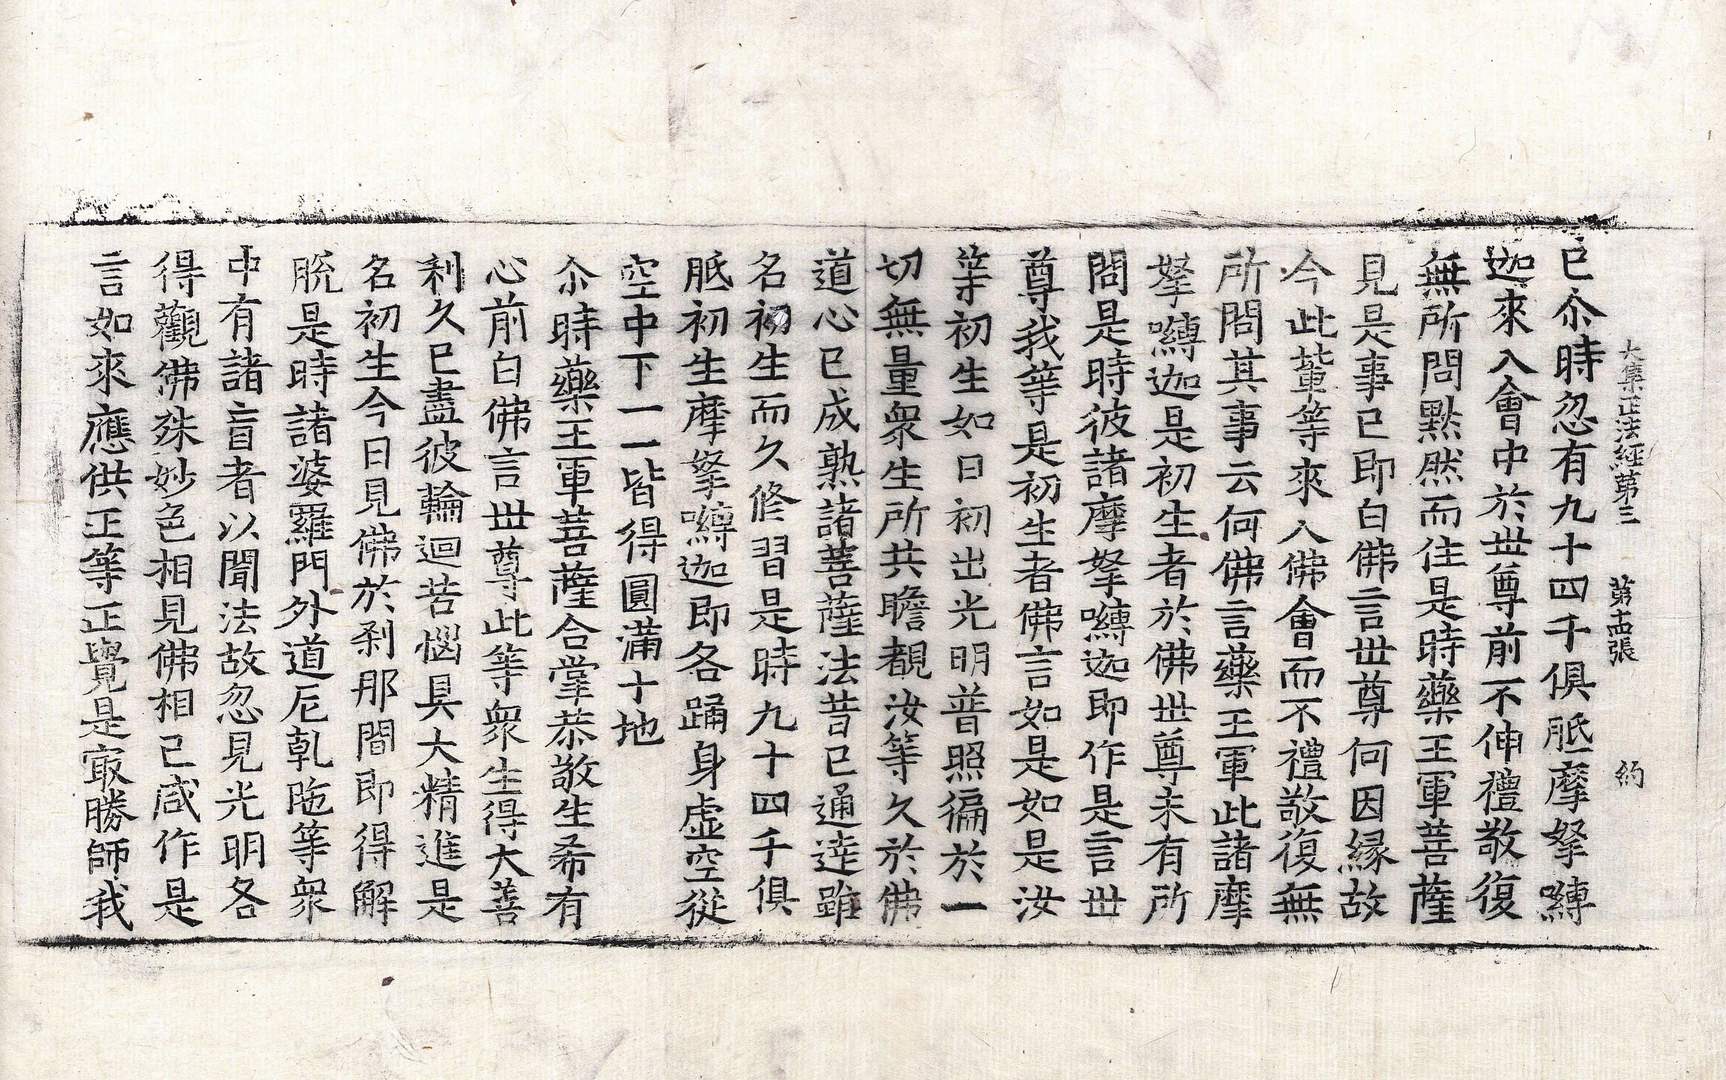 大集正法經第三　第十四張　約
已尒時忽有九十四千俱胝摩拏嚩
迦來入會中於世尊前不伸禮敬復
無所問默然而住是時藥王軍菩薩
見是事已即白佛言世尊何因縁故
今此輩等來入佛會而不禮敬復無
所問其事云何佛言藥王軍此諸摩
拏嚩迦是初生者於佛世尊未有所
問是時彼諸摩拏嚩迦即作是言世
尊我等是初生者佛言如是如是汝
等初生如日初出光明普照徧於一
切無量衆生所共瞻覩汝等久於佛
道心已成熟諸菩薩法昔已通達雖
名初生而久修習是時九十四千俱
胝初生摩拏嚩迦即各踊身虛空從
空中下一一皆得圓滿十地
尒時藥王軍菩薩合掌恭敬生希有
心前白佛言世尊此等衆生得大善
利久已盡彼輪迴苦惱具大精進是
名初生今日見佛於刹那間即得解
脫是時諸婆羅門外道尼乹陁等衆
中有諸盲者以聞法故忽見光明各
得觀佛殊妙色相見佛相已咸作是
言如來應供正等正覺是㝡勝師我